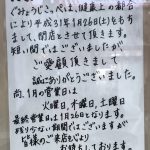 "みょうじょう"は、健康上の都合
により平成31年1月26日(土)をもち
まして、閉店とさせて頂きます。
短い間ではございましたが
ご愛顧頂きまして
誠にありがとうございました。
尚、1月の営業日は
火曜日、木曜日、土曜日
最終営業日は1月26日となります。
残り少ない期間ではございますが
皆様のご来店を心より
お待ちしております。